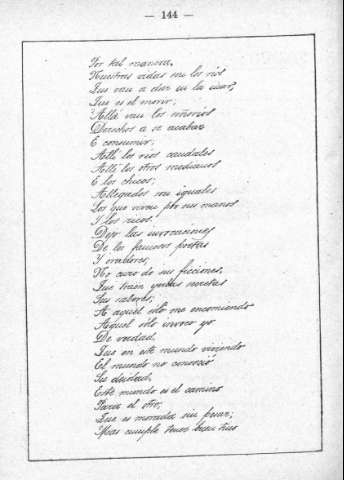 — 144 —
Por tal manera,
Nuestras vidas son los ríos
Que van a dar en la mar,
Que es el morir;
Allá van los señoríos
Derechos a se acabar
E consumir;
Allí los ríos caudales
Allí los otros medianos
E los chicos;
Allegados son iguales
Los que viven por sus manos
Y los ricos.
Dejo las invocaciones
De los famosos poetas
Y oradores;
No curo de sus ficciones,
Que traen yerbas secretas
Sus sabores;
A aquel sólo me encomiendo
Aquel sólo invoco yo
De verdad,
Que en este mundo viviendo
El mundo no conoció
Su deidad.
Este mundo es el camino
Para el otro,
Que es morada sin pesar;
Mas cumple tener buen tino